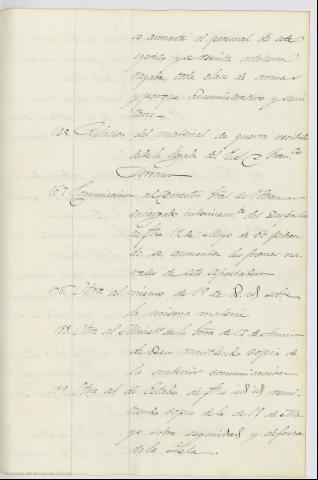 se aumente el personal de este
ejercito y se remita artilleria
rayada, toda clase de armas
y parque administrativo y sani
tario
185. Relacion del material de guerra recibido
desde la llegada del E. S. D. Fran.co
Serrano
187. Comunicacion al Director Gral de Ultramar
encargado interinam.te del Despacho
de fha 12 de Mayo de 60 pidien
do se aumenten las fuerzas na
vales de este apostadero
Otra al mismo de 19 de id. id sobre
la misma materia
188. Otra al Minist. de la Grra de 12 de
remitiendo copia de
la anterior comunicacion
189. Otra al de Estado de fha id id remi
tiendo copia de la de 19 de Ma
yo sobre seguridad y defensa
de la Isla